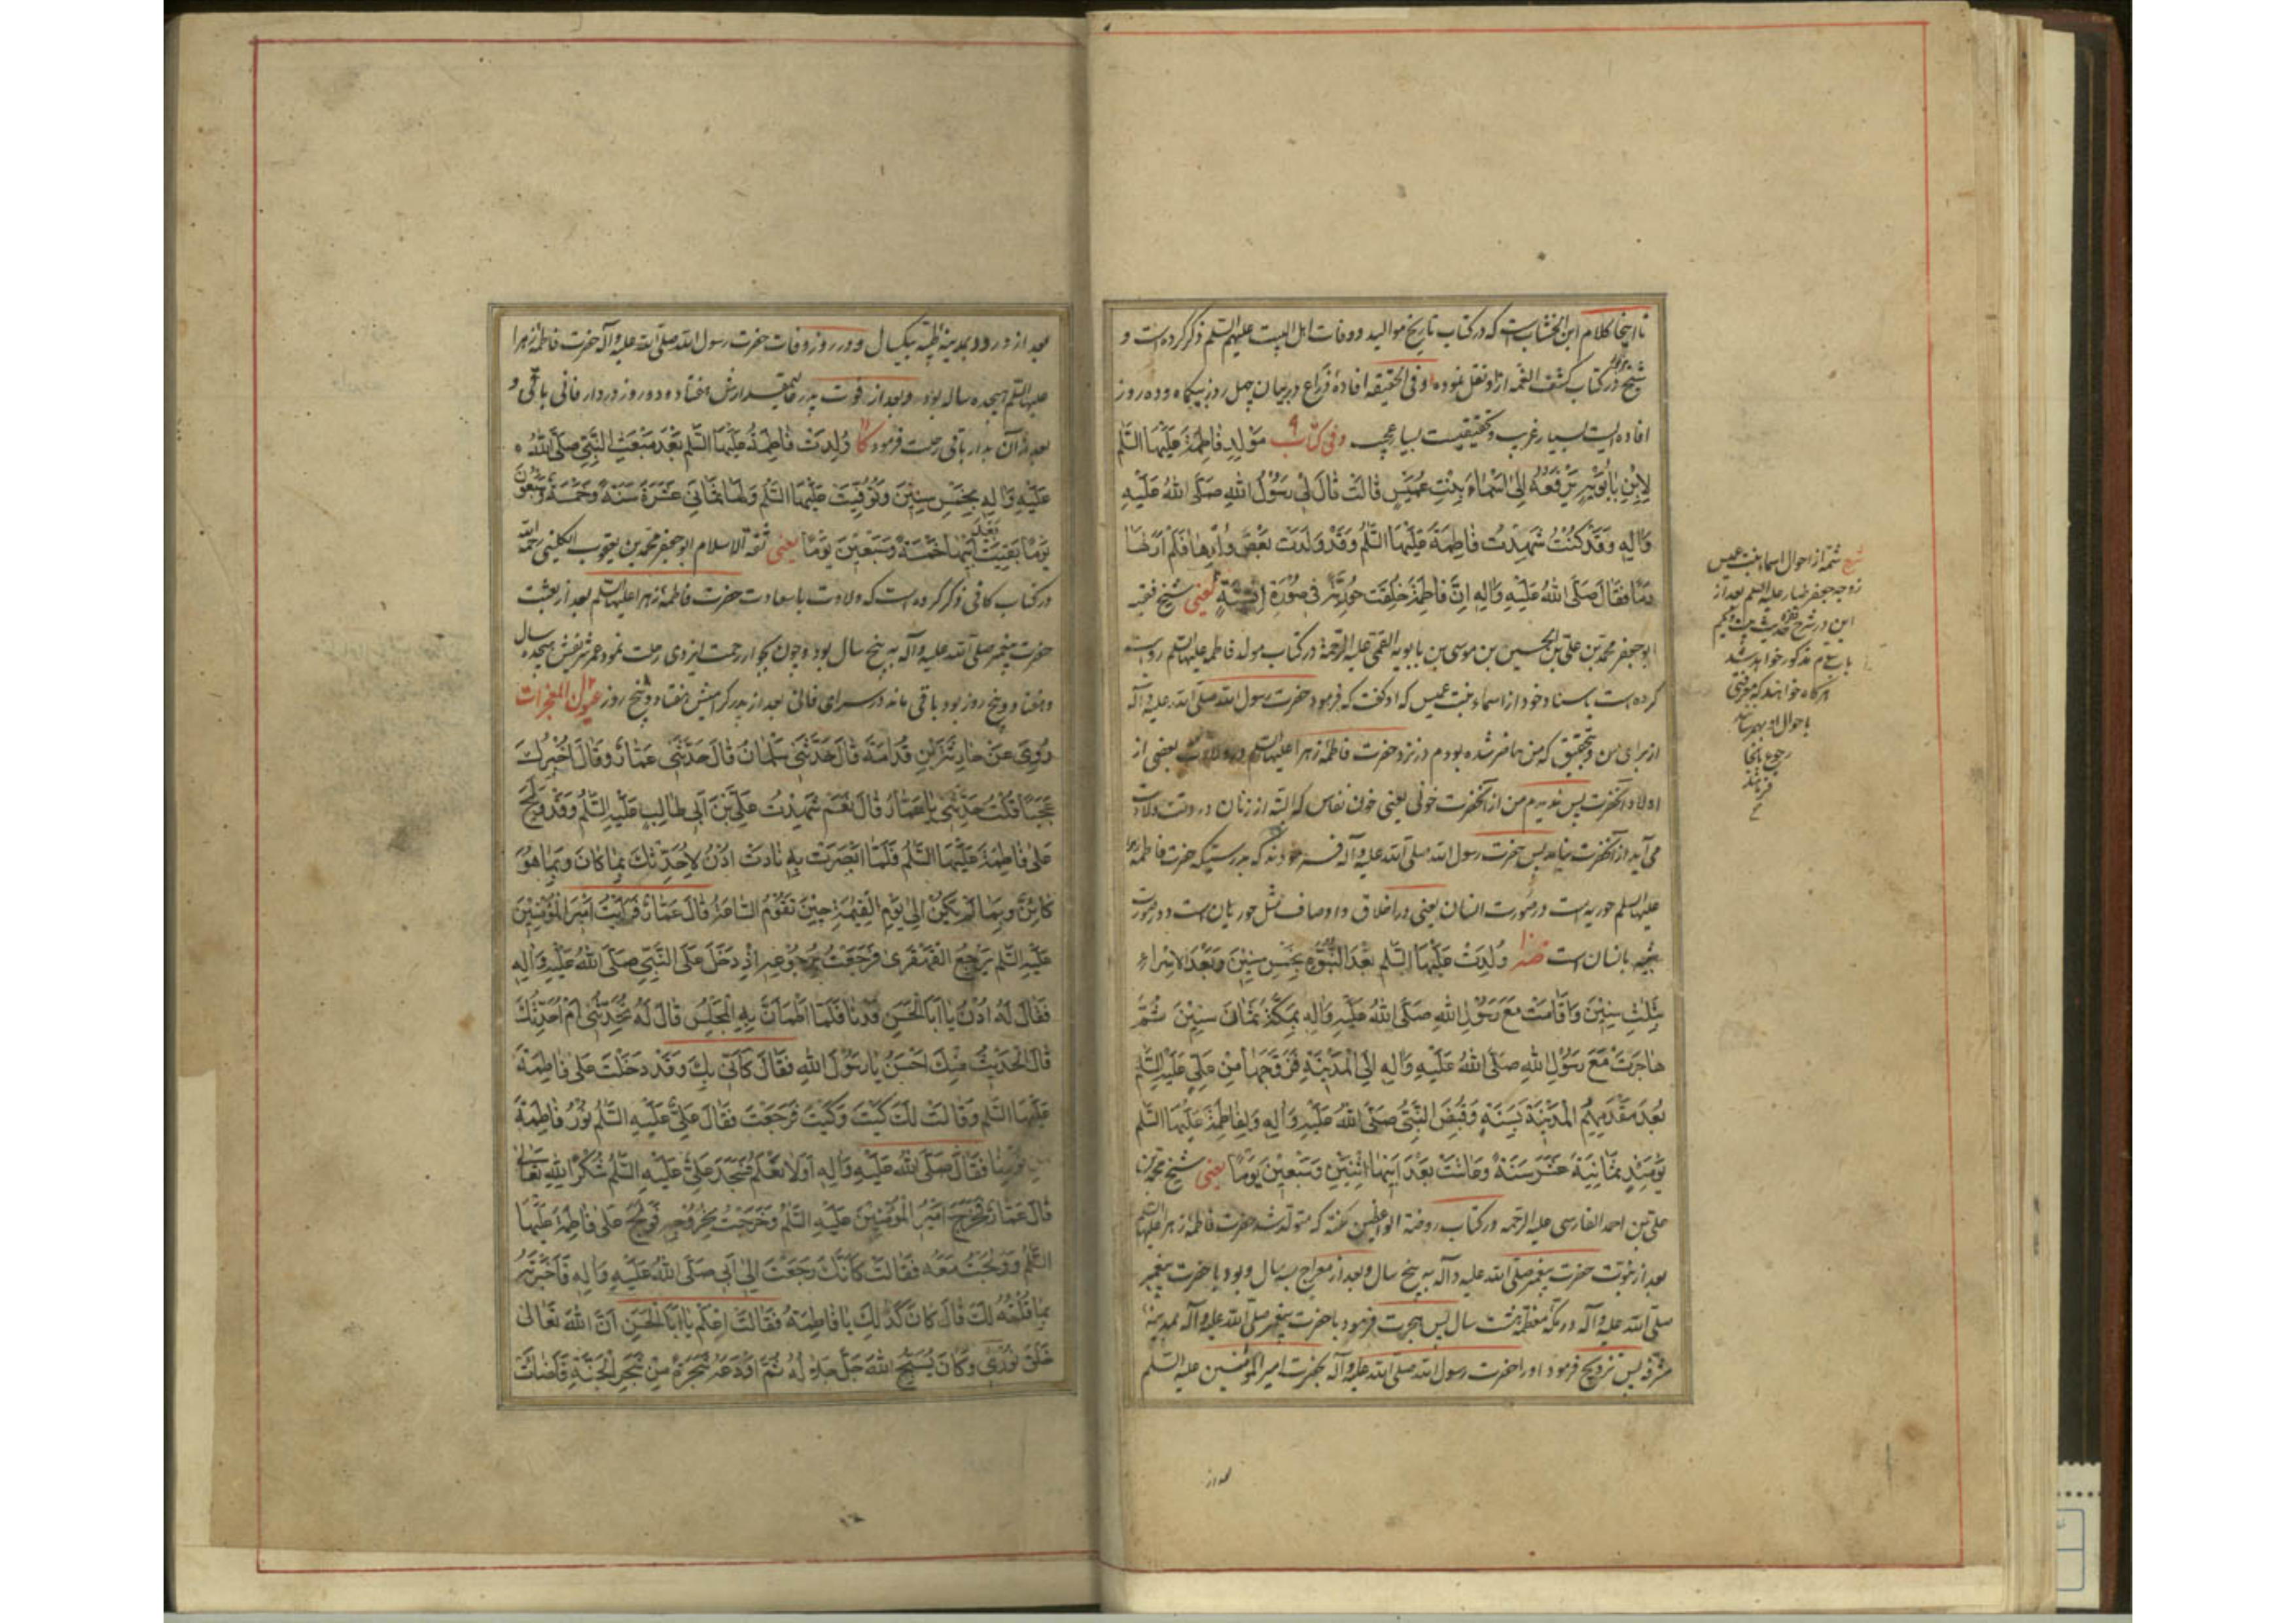 تا اینجا کلام ابن الخشابست که در کتاب تاریخ موالید و وفات اهل البیت علیهم السلم ذکر کرده است و
شیخ در کتاب کشف الغمه ازو نقل نموده و فی الحقیقه افادهٔ در بیان چهل روز بیکماه و ده روز
افاده ایست بسیار غریب و تحقیقیست بسیار عجیب و فی کتاب مَوْلِدِ فَاطِمَةَ عَلَیْهَا السَّلم
لِابْنِ بَابَوَیْهِ یَرْفَعُهُ اِلیٰ اَسْمَاءَ بِنْتِ عُمَیْسٍ قَالَتْ قَالَ لِی رَسُوْلُ اللهِ صَلَّی اللهُ عَلَیْهِ
وَاٰلِهِ وَقَدْ کُنْتُ شَهِدْتُ فَاطِمَةَ عَلَیْهَا السَّلم وَقَدْ وَلَدَتْ بَعْضَ وُلْدِهَا فَلَمْ اَرَ لَهَا
دَمًا فَقَالَ صَلَّی اللهُ عَلَیْهِ وَاٰلِهِ اِنَّ فَاطِمَةَ خُلِقَتْ حُوْرِیَّةً فِی صُوْرَةِ اِنْسِیَّةٍ یعنی شیخ فقیه
ابو جعفر محمد بن علی بن الحسین بن موسی بن بابویه القمی علیه الرحمة در کتاب مولد فاطمه علیها السلم روایت
کرده است باسناد خود از اسماء بنت عمیس که او گفت که فرمود حضرت رسول الله صلی الله علیه و آله
از برای من و بتحقیق که من حاضر شده بودم در نزد حضرت فاطمه زهرا علیها السلم در ولادت بعضی از
اولاد آنحضرت پس ندیدم من از آنحضرت خونی یعنی خون نفاس که البته از زنان در وقت ولادت
می آید از آنحضرت نیامد پس حضرت رسول الله صلی الله علیه و آله فرمودند که بدرستیکه حضرت فاطمه زهرا
علیها السلم حوریه است در صورت انسان یعنی در اخلاق و اوصاف مثل حوریان است و در صورت
شبیه بانسان است ضه وُلِدَتْ عَلَیْهَا السَّلم بَعْدَ النُّبُوَّةِ بِخَمْسِ سِنِیْنَ وَبَعْدَ الْاِسْرَاءِ
بِثَلٰثِ سِنِیْنَ وَاَقَامَتْ مَعَ رَسُوْلِ اللهِ صَلَّی اللهُ عَلَیْهِ وَاٰلِهِ بِمَکَّةَ ثَمَانَ سِنِیْنَ ثُمَّ
هَاجَرَتْ مَعَ رَسُوْلِ اللهِ صَلَّی اللهُ عَلَیْهِ وَاٰلِهِ اِلَی الْمَدِیْنَةِ فَزَوَّجَهَا مِنْ عَلِیٍّ عَلَیْهِ السَّلم
بَعْدَ مَقْدَمِهِمُ الْمَدِیْنَةَ بِسَنَةٍ وَقُبِضَ النَّبِیُّ صَلَّی اللهُ عَلَیْهِ وَاٰلِهِ وَلِفَاطِمَةَ عَلَیْهَا السَّلم
یَوْمَئِذٍ ثَمَانِیَةَ عَشَرَ سَنَةً وَعَاشَتْ بَعْدَ اَبِیْهَا اثْنَیْنِ وَسَبْعِیْنَ یَوْمًا یعنی شیخ محمد بن
علی بن احمد الفارسی علیه الرحمه در کتاب روضة الواعظین گفته که متولد شد حضرت فاطمه زهرا علیها السلم
بعد از نبوت حضرت پیغمبر صلی الله علیه و آله به پنج سال و بعد از معراج بسه سال و بود با حضرت پیغمبر
صلی الله علیه و آله در مکه معظمه هشت سال پس هجرت فرمود با حضرت پیغمبر صلی الله علیه و آله بمدینه
مشرفه پس تزویج فرمود او را حضرت رسول الله صلی الله علیه و آله بحضرت امیر المؤمنین علیه السلم
بعد از
شرح شمه از احوال اسماء بنت عمیس
زوجه جعفر طیار علیه السلم بعد از
این در شرح حدیث بیست و یکم
مذکور خواهد شد
هر گاه خواهند که معرفتی
باحوال او بهم رسانند
رجوع بانجا
فرمایند
بعد از ورود بمدینه طیبه بیکسال و در روز وفات حضرت رسول الله صلی الله علیه و آله حضرت فاطمه زهرا
علیها السلم هیجده ساله بود و بعد از فوت پدر عالیمقدارش هفتاد و دو روز در دار فانی باقی و
بعد از آن بدار باقی رحلت فرمود کا وُلِدَتْ فَاطِمَةُ عَلَیْهَا السَّلم بَعْدَ مَبْعَثِ النَّبِیِّ صَلَّی اللهُ
عَلَیْهِ وَاٰلِهِ بِخَمْسِ سِنِیْنَ وَتُوُفِّیَتْ عَلَیْهَا السَّلم وَلَهَا ثَمَانِیَ عَشَرَةَ سَنَةً وَخَمْسَةٌ وَسَبْعُوْنَ
یَوْمًا بَقِیَتْ بَعْدَ اَبِیْهَا خَمْسَةً وَسَبْعِیْنَ یَوْمًا یعنی ثقة الاسلام ابو جعفر محمد بن یعقوب الکلینی رحمه الله
در کتاب کافی ذکر کرده است که ولادت باسعادت حضرت فاطمه زهرا علیها السلم بعد از بعثت
حضرت پیغمبر صلی الله علیه و آله به پنج سال بود و چون بجوار رحمت ایزدی رحلت نمود عمر شریفش هیجده سال
و هفتاد و پنج روز بود باقی ماند در سرای فانی بعد از پدر گرامیش هفتاد و پنج روز عیون المعجزات
رُوِیَ عَنْ حَارِثَةَ بْنِ قُدَامَةَ قَالَ حَدَّثَنِی سَلْمَانُ قَالَ حَدَّثَنِی عَمَّارٌ وَقَالَ اُخْبِرُكَ
عَجَبًا قُلْتُ حَدِّثْنِی یَا عَمَّارُ قَالَ نَعَمْ شَهِدْتُ عَلِیَّ بْنَ اَبِی طَالِبٍ عَلَیْهِ السَّلم وَقَدْ وَلَجَ
عَلیٰ فَاطِمَةَ عَلَیْهَا السَّلم فَلَمَّا اَبْصَرَتْ بِهِ نَادَتْ اُدْنُ لِاُحَدِّثَكَ بِمَا کَانَ وَبِمَا هُوَ
کَائِنٌ وَبِمَا لَمْ یَکُنْ اِلیٰ یَوْمِ الْقِیٰمَةِ حِیْنَ تَقُوْمُ السَّاعَةُ قَالَ عَمَّارٌ فَرَاَیْتُ اَمِیْرَ الْمُؤْمِنِیْنَ
عَلَیْهِ السَّلم یَرْجِعُ الْقَهْقَرٰی فَرَجَعْتُ بِرُجُوْعِهِ اِذْ دَخَلَ عَلَی النَّبِیِّ صَلَّی اللهُ عَلَیْهِ وَاٰلِهِ
فَقَالَ لَهُ اُدْنُ یَا اَبَا الْحَسَنِ فَدَنَا فَلَمَّا اطْمَاَنَّ بِهِ الْمَجْلِسُ قَالَ لَهُ تُحَدِّثُنِی اَمْ اُحَدِّثُكَ
قَالَ الْحَدِیْثُ مِنْكَ اَحْسَنُ یَا رَسُوْلَ اللهِ فَقَالَ کَاَنِّی بِكَ وَقَدْ دَخَلْتَ عَلیٰ فَاطِمَةَ
عَلَیْهَا السَّلم وَقَالَتْ لَكَ کَیْتَ وَکَیْتَ فَرَجَعْتَ فَقَالَ عَلِیٌّ عَلَیْهِ السَّلم نُوْرُ فَاطِمَةَ
مِنْ نُوْرِنَا فَقَالَ صَلَّی اللهُ عَلَیْهِ وَاٰلِهِ اَوَلَا تَعْلَمُ فَسَجَدَ عَلِیٌّ عَلَیْهِ السَّلم شُکْرًا لِلّٰهِ تَعَالیٰ
قَالَ عَمَّارٌ فَخَرَجَ اَمِیْرُ الْمُؤْمِنِیْنَ عَلَیْهِ السَّلم وَخَرَجْتُ بِخُرُوْجِهِ فَوَلَجَ عَلیٰ فَاطِمَةَ عَلَیْهَا
السَّلم وَوَلَجْتُ مَعَهُ فَقَالَتْ کَاَنَّكَ رَجَعْتَ اِلیٰ اَبِی صَلَّی اللهُ عَلَیْهِ وَاٰلِهِ فَاَخْبَرْتَهُ
بِمَا قُلْتُهُ لَكَ قَالَ کَانَ کَذٰلِكَ یَا فَاطِمَةُ فَقَالَتْ اِعْلَمْ یَا اَبَا الْحَسَنِ اَنَّ اللهَ تَعَالیٰ
خَلَقَ نُوْرِی وَکَانَ یُسَبِّحُ اللهَ جَلَّ جَلَالُهُ ثُمَّ اَوْدَعَهُ شَجَرَةً مِنْ شَجَرِ الْجَنَّةِ فَاَضَاءَتْ